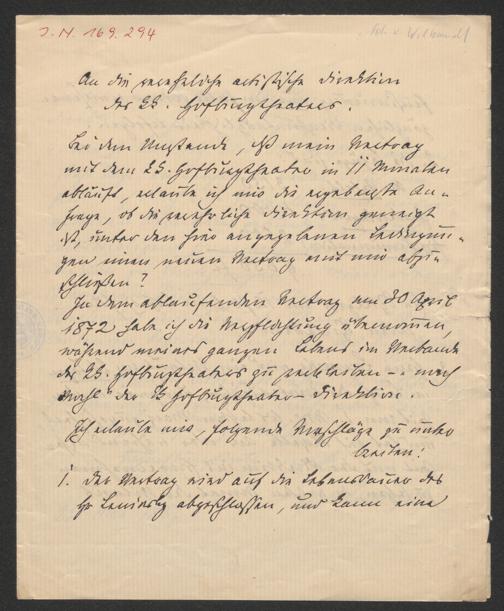 J. N. 169.294
An die verehrliche artistische Direktion
des k.k. Hofburgtheaters.
Bei dem Umstande, daß mein Vertrag
mit dem k.k. Hofburgtheater in 11 Monaten
abläuft, erlaube ich mir die ergebenste An-
frage, ob die verehrliche Direktion geneigt
ist, unter den hier angegebenen Bedingun-
gen einen neuen Vertrag mit mir abzu-
schließen?
In dem ablaufenden Vertrag vom 30 April
1872 habe ich die Verpflichtung übernommen,
während meines ganzen Lebens im Verbande
des k.k. Hofburgtheaters zu verbleiben - "nach
Wahl" der kk Hofburgtheater-Direktion.
Ich erlaube mir, folgende Vorschläge zu unter
breiten:
1. Der Vertrag wird auf die Lebensdauer des
Hr Lewinsky abgeschlossen, und kann eine